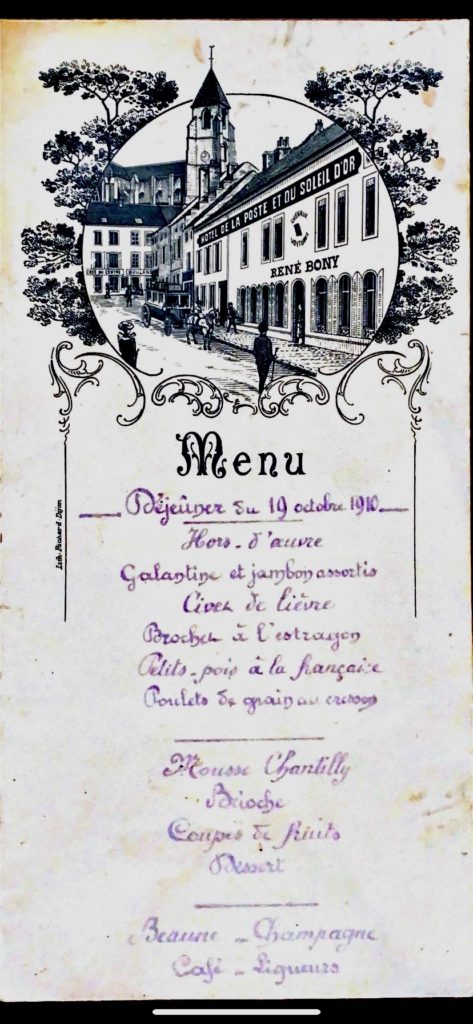 HOTEL DE LA POSTE ET DU SOLEIL D'OR
RENÉ BONY
Menu
Déjeuner du 19 octobre 1910
Hors-d'œuvre
Galantine et jambon assortis
Civet de lièvre
Brochet à l'estragon
Petits-pois à la française
Poulets de grain au cresson
Mousse Chantilly
Brioche
Coupes de fruits
Dessert
Beaune - Champagne
Café - Liqueurs